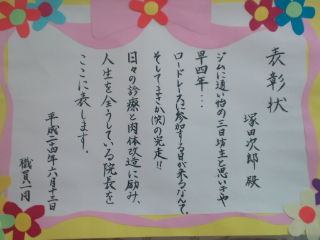 表彰状
塚田次郎 殿
ジムに通い始め三日坊主と思いきや
早四年…
ロードレースに参加する日が来るなんて、
そしてまさか(笑)の完走!!
日々の診療と肉体改造に励み、
人生を全うしている院長を
ここに表します。
平成二十四年六月十三日
職員一同